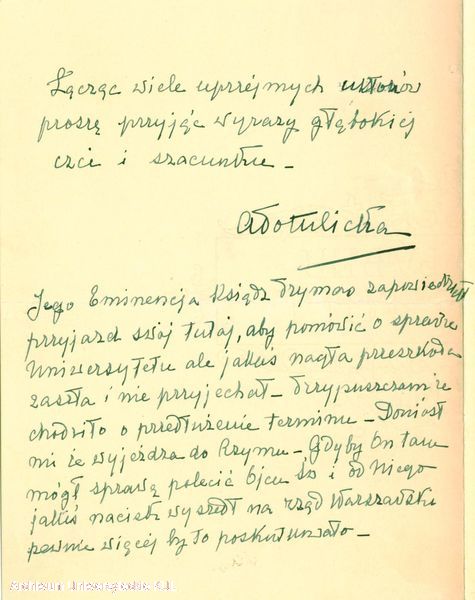 Łącząc wiele uprzejmych ukłonów
proszę przyjąć wyrazy głębokiej
czci i szacunku –
Jego Eminencja Ksiądz Prymas zapowiedział
przyjazd swój tutaj, aby pomówić o sprawie
Uniwersytetu ale jakaś nagła przeszkoda
zaszła i nie przyjechał – Przypuszczam że
chodziło o przedłużenie terminu – Doniósł
mi że wyjeżdża do Rzymu – Gdyby On tam
mógł sprawę polecić Ojcu św i od Niego
jakiś nacisk wyszedł na rząd Warszawski
pewnie więcej by to poskutkowało –
Archiwum Uniwersyteckie KUL